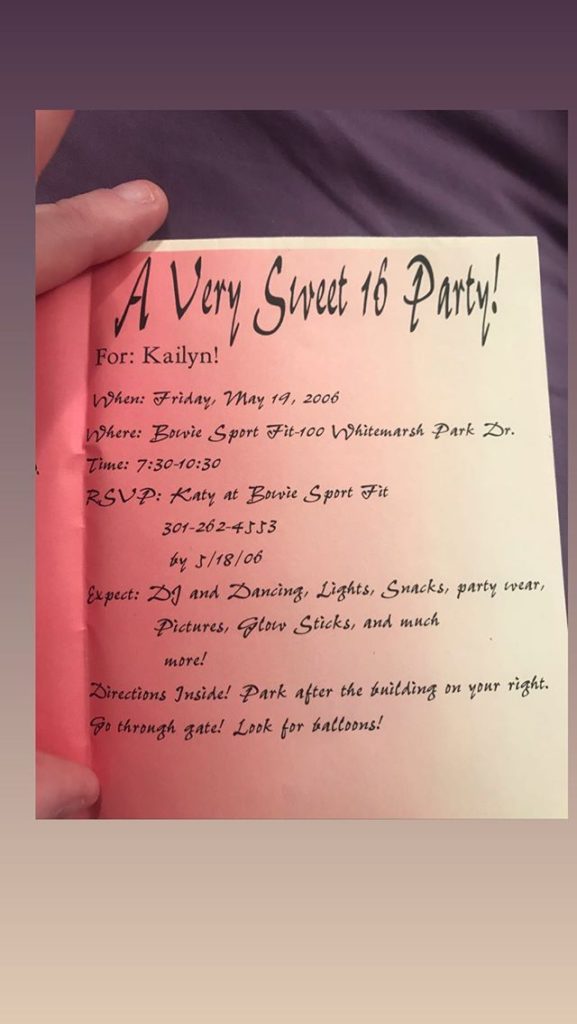 A Very Sweet 16 Party!
For: Kailyn!
When: Friday, May 19, 2006
Where: Bowie Sport Fit-100 Whitemarsh Park Dr.
Time: 7:30-10:30
RSVP: Katy at Bowie Sport Fit
301-262-4553
by 5/18/06
Expect: DJ and Dancing, Lights, Snacks, party wear,
Pictures, Glow Sticks, and much
more!
Directions Inside! Park after the building on your right.
Go through gate! Look for balloons!